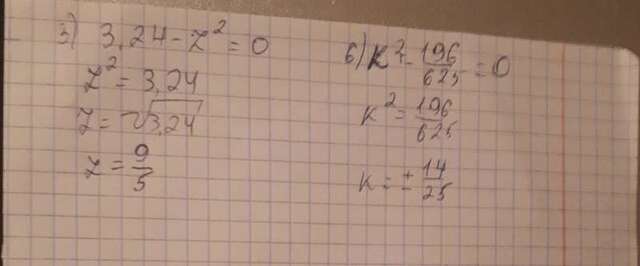 5) 3,24 - z² = 0
z² = 3,24
z = √3,24
z = 9/5
6) K² - 196/625 = 0
K² = 196/625
K = ± 14/25